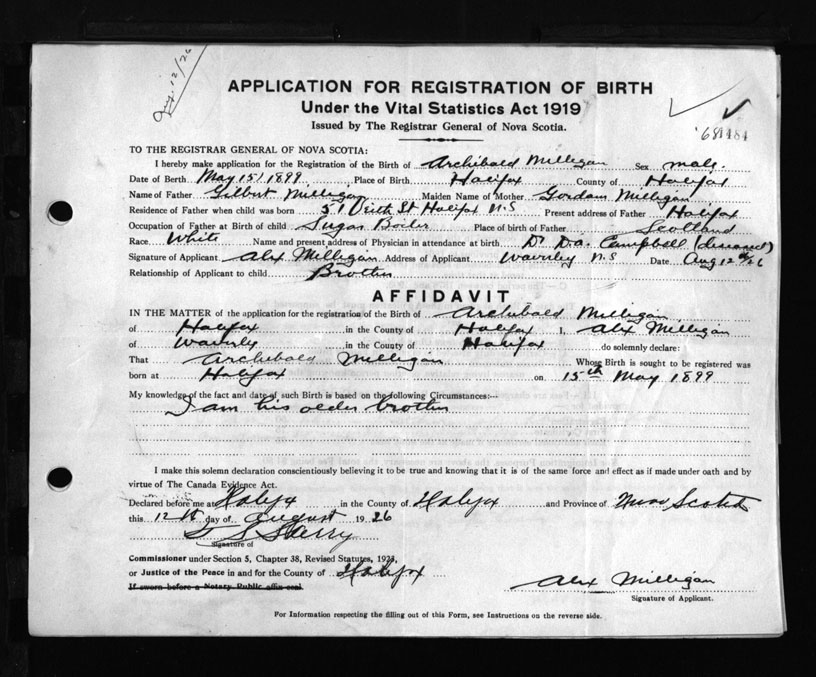 Aug. 12/26
APPLICATION FOR REGISTRATION OF BIRTH
Under the Vital Statistics Act 1919
Issued by The Registrar General of Nova Scotia.
TO THE REGISTRAR GENERAL OF NOVA SCOTIA:
I hereby make application for the Registration of the Birth of Archibald Milligan Sex male.
Date of Birth May 15/1899 Place of Birth Halifax County of Halifax
Name of Father Gilbert Milligan Maiden Name of Mother Gordon Milligan
Residence of Father when child was born St Halifax N.S Present address of Father Halifax
Occupation of Father at Birth of child Sugar Boiler Place of birth of Father Scotland
Race White Name and present address of Physician in attendance at birth Dr D.A. Campbell (deceased)
Signature of Applicant Alex Milligan Address of Applicant Waverley N.S Date Aug 12th/26
Relationship of Applicant to child Brother
AFFIDAVIT
IN THE MATTER of the application for the registration of the Birth of Archibald Milligan
of Halifax in the County of Halifax I, Alex Milligan
of Waverly in the County of Halifax do solemnly declare:
That Archibald Milligan Whose Birth is sought to be registered was
born at Halifax on 15th May 1899
My knowledge of the fact and date of such Birth is based on the following Circumstances:—
I am his older brother
I make this solemn declaration conscientiously believing it to be true and knowing that it is of the same force and effect as if made under oath and by
virtue of The Canada Evidence Act.
Declared before me at Halifax in the County of Halifax and Province of Nova Scotia
this 12th day of August 1926
Signature of
Commissioner under Section 5, Chapter 38, Revised Statutes, 1923,
or Justice of the Peace in and for the County of Halifax
If sworn before a Notary Public affix seal
Alex Milligan
Signature of Applicant.
For Information respecting the filling out of this Form, see Instructions on the reverse side.